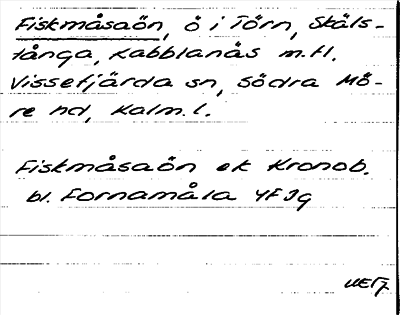 Fiskmåsaön, ö i Törn, Skäls-
tånga, Kabblanäs m.fl.
Vissefjärda sn, Södra Mö-
re hd, Kalm. l.
Fiskmåsaön ek Kronob.
bl. Fornamåla 4F3g